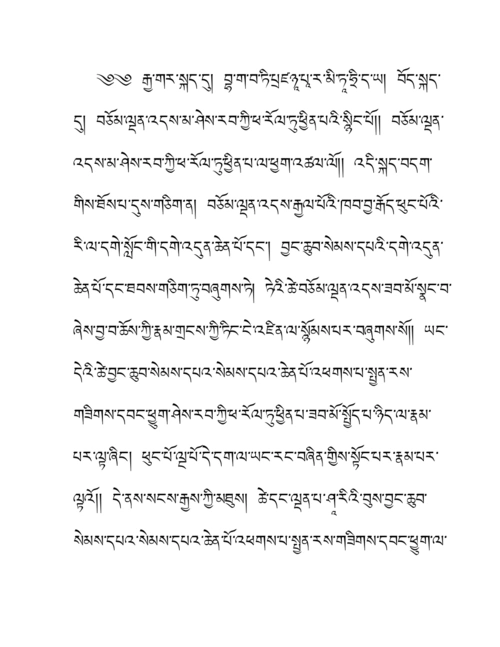 ༄༅༅ རྒྱ་གར་སྐད་དུ། བྷ་ག་བ་ཏི་པྲཛཉཱ་པཱ་ར་མི་ཏཱ་ཧྲི་ད་ཡ། བོད་སྐད་
དུ། བཅོམ་ལྡན་འདས་མ་ཤེས་རབ་ཀྱི་ཕ་རོལ་ཏུ་ཕྱིན་པའི་སྙིང་པོ།། བཅོམ་ལྡན་
འདས་མ་ཤེས་རབ་ཀྱི་ཕ་རོལ་ཏུ་ཕྱིན་པ་ལ་ཕྱག་འཚལ་ལོ།། འདི་སྐད་བདག་
གིས་ཐོས་པ་དུས་གཅིག་ན། བཅོམ་ལྡན་འདས་རྒྱལ་པོའི་ཁབ་བྱ་རྒོད་ཕུང་པོའི་
རི་ལ་དགེ་སློང་གི་དགེ་འདུན་ཆེན་པོ་དང་། བྱང་ཆུབ་སེམས་དཔའི་དགེ་འདུན་
ཆེན་པོ་དང་ཐབས་གཅིག་ཏུ་བཞུགས་ཏེ། ཏེའི་ཚེ་བཅོམ་ལྡན་འདས་ཟབ་མོ་སྣང་བ་
ཞེས་བྱ་བ་ཆོས་ཀྱི་རྣམ་གྲངས་ཀྱི་ཏིང་ངེ་འཛིན་ལ་སྙོམས་པར་བཞུགས་སོ།། ཡང་
དེའི་ཚེ་བྱང་ཆུབ་སེམས་དཔའ་སེམས་དཔའ་ཆེན་པོ་འཕགས་པ་སྤྱན་རས་
གཟིགས་དབང་ཕྱུག་ཤེས་རབ་ཀྱི་ཕ་རོལ་ཏུ་ཕྱིན་པ་ཟབ་མོ་སྤྱོད་པ་ཉིད་ལ་རྣམ་
པར་ལྟ་ཞིང། ཕུང་པོ་ལྔ་པོ་དེ་དག་ལ་ཡང་རང་བཞིན་གྱིས་སྟོང་པར་རྣམ་པར་
ལྟའོ།། དེ་ནས་སངས་རྒྱས་ཀྱི་མཐུས། ཚེ་དང་ལྡན་པ་ཤཱ་རིའི་བུས་བྱང་ཆུབ་
སེམས་དཔའ་སེམས་དཔའ་ཆེན་པོ་འཕགས་པ་སྤྱན་རས་གཟིགས་དབང་ཕྱུག་ལ་